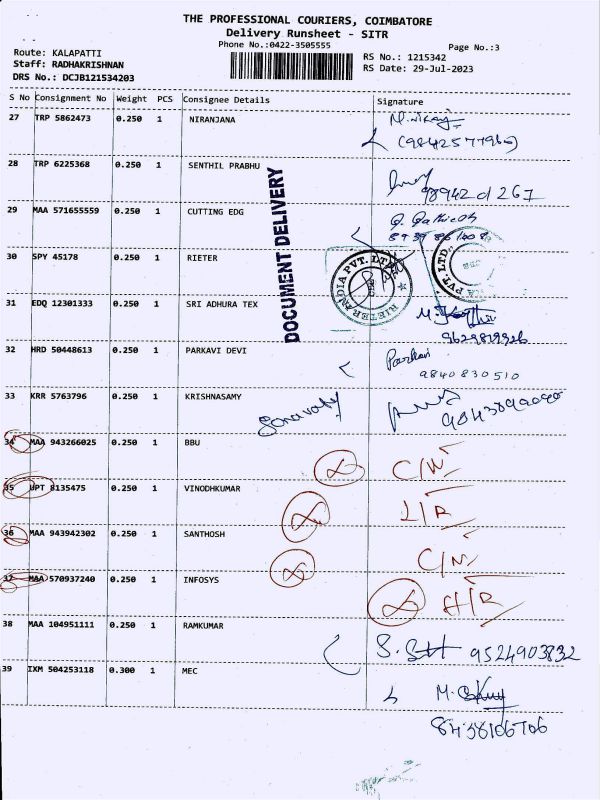 THE PROFESSIONAL COURIERS, COIMBATORE
Delivery Runsheet - SITR
Phone No.:0422-3505555
Page No.:3
Route: KALAPATTI
Staff: RADHAKRISHNAN
DRS No.: DCJB121534203
RS No.: 1215342
RS Date: 29-Jul-2023
S No Consignment No Weight PCS Consignee Details Signature
27 TRP 5862473 0.250 1 NIRANJANA
(9842577960)
28 TRP 6225368 0.250 1 SENTHIL PRABHU
DOCUMENT DELIVERY
29 MAA 571655559 0.250 1 CUTTING EDG
30 SPY 45178 0.250 1 RIETER
RIETER INDIA PVT. LTD.
31 EDQ 12301333 0.250 1 SRI ADHURA TEX
32 HRD 50448613 0.250 1 PARKAVI DEVI
Parkavi
9840830510
33 KRR 5763796 0.250 1 KRISHNASAMY
34 MAA 943266025 0.250 1 BBU
C/N
35 UPT 8135475 0.250 1 VINODHKUMAR
I/R
36 MAA 943942302 0.250 1 SANTHOSH
C/N
37 MAA 570937240 0.250 1 INFOSYS
H/R
38 MAA 104951111 0.250 1 RAMKUMAR
9524903832
39 IXM 504253118 0.300 1 MEC
8438106706